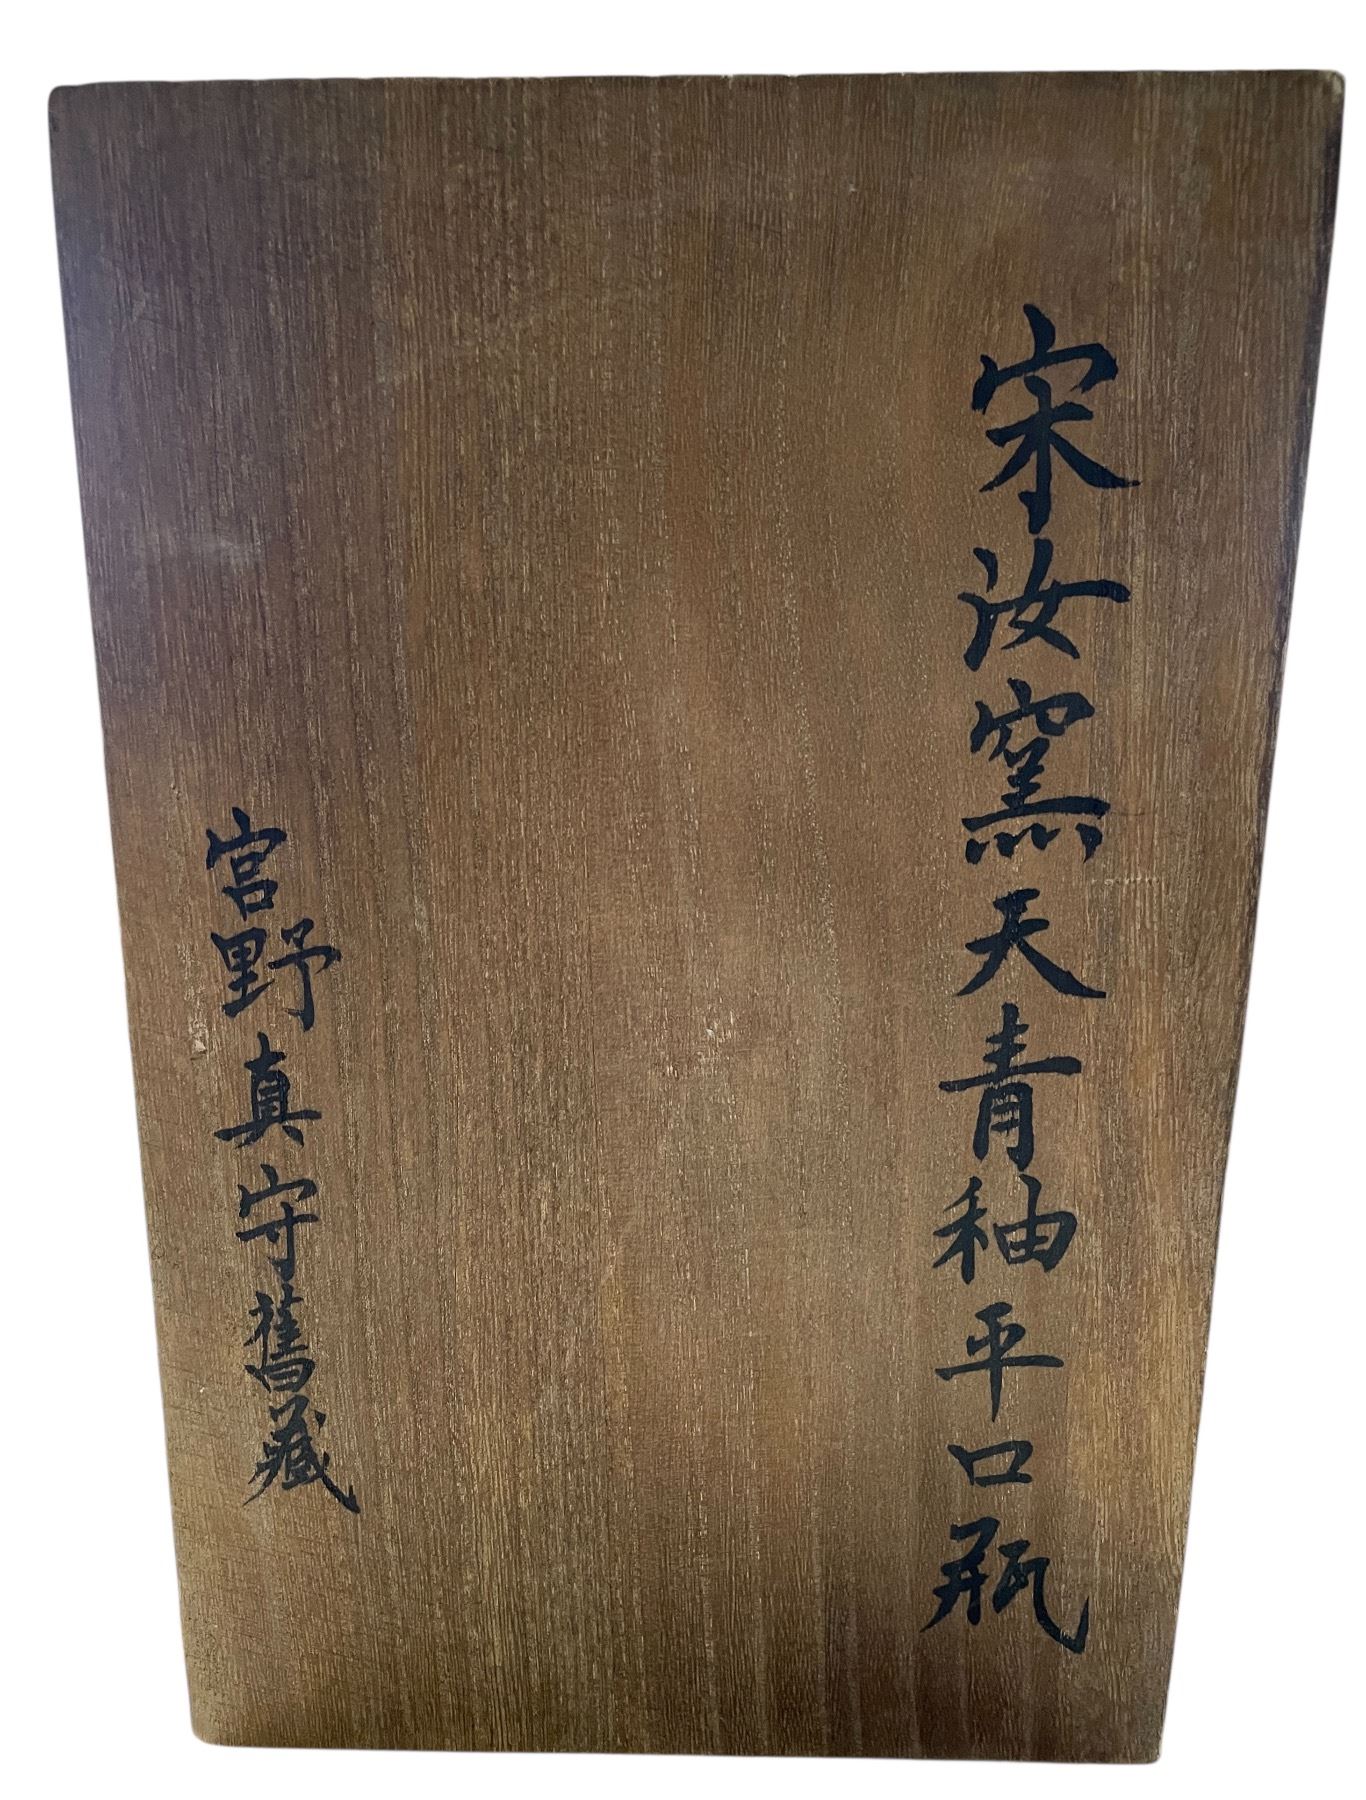 宋汝窯天青釉平口瓶
宮野真守舊藏